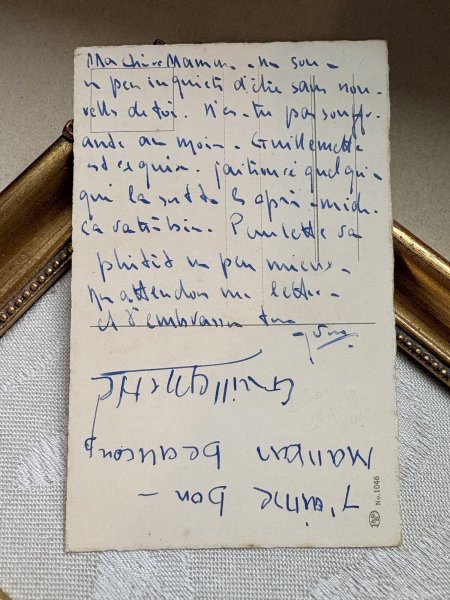 Ma chère Maman.
peu inquiets d'être sans nou-
velles de toi. N'es-tu pas souffr-
ante au moins. Guillemette
est exquise. j'ai trouvé quelqu'
qui la sort les après-midi.
ça va très bien. Paulette va
plutôt un peu mieux.
attendons une lettre
et t'embrassons tous
J'aime bon-
Maman beaucoup
Guillemette
No. 1046